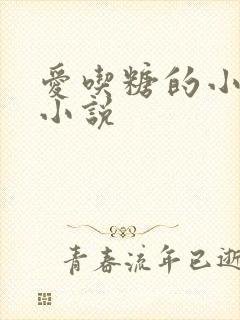 愛喫糖的小
小說
青春流年已逝